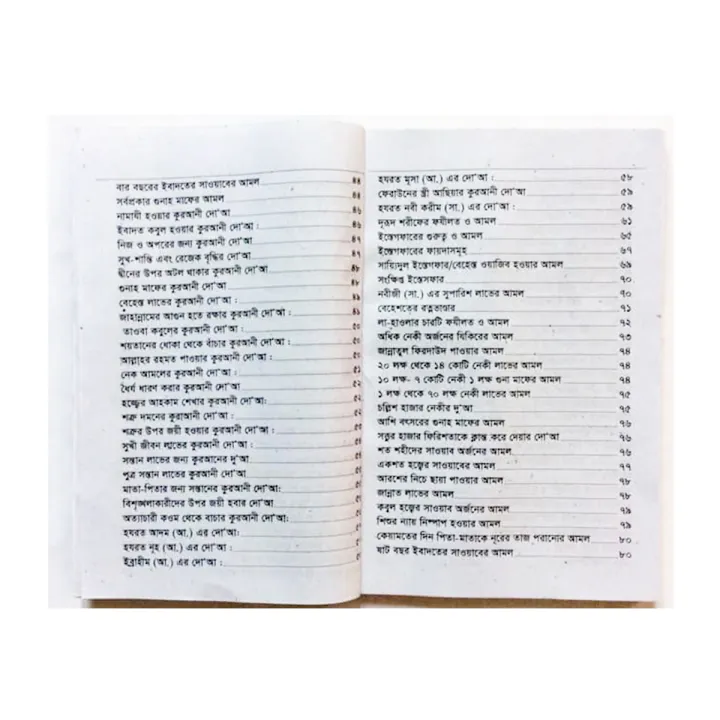 বার বছরের ইবাদতের সাওয়াবের আমল ৪৪
সর্বপ্রকার গুনাহ মাফের আমল ৪৪
নামাযী হওয়ার কুরআনী দো'আ ৪৬
ইবাদত কবুল হওয়ার কুরআনী দো'আ : ৪৬
নিজ ও অপরের জন্য কুরআনী দো'আ ৪৭
সুখ-শান্তি এবং রেজেক বৃদ্ধির দো'আ ৪৭
দ্বীনের উপর অটল থাকার কুরআনী দো'আ ৪৮
গুনাহ মাফের কুরআনী দো'আ ৪৮
বেহেস্ত লাভের কুরআনী দো'আ : ৪৯
জাহান্নামের আগুন হতে রক্ষার কুরআনী দো'আ : ৪৯
তাওবা কবুলের কুরআনী দো'আ : ৫০
শয়তানের ধোকা থেকে বাঁচার কুরআনী দো'আ : ৫০
আল্লাহর রহমত পাওয়ার কুরআনী দো'আ : ৫০
নেক আমলের কুরআনী দো'আ : ৫১
ধৈর্য ধারণ করার কুরআনী দো'আ ৫২
হজ্জের আহকাম শেখার কুরআনী দো'আ: ৫২
শত্রু দমনের কুরাআনী দো'আ : ৫২
শত্রুর উপর জয়ী হওয়ার কুরআনী দো'আ :
সুখী জীবন লাভের কুরআনী দো'আ :
সন্তান লাভের জন্য কুরআনের দু'আ
পুত্র সন্তান লাভের কুরআনী দো'আ :
মাতা-পিতার জন্য সন্তানের কুরআনী দো'আ:
বিশৃঙ্খলাকারীদের উপর জয়ী হবার দো'আ
অত্যাচারী কওম থেকে বাচার কুরআনী দো'আ:
হযরত আদম (আ.) এর দো'আ:
হযরত নূহ (আ.) এর দো'আ :
ইব্রাহীম (আ.) এর দো'আ :
হযরত মূসা (আ.) এর দো'আ : ৫৮
ফেরাউনের স্ত্রী আছিয়ার কুরআনী দো'আ ৫৯
হযরত নবী করীম (সা.) এর দো'আ : ৫৯
দূরূদ শরীফের ফযীলত ও আমল ৬১
ইস্তেগফারের গুরুত্ব ও আমল ৬৫
ইস্তেগফারের ফায়দাসমূহ ৬৭
সায়্যিদুল ইস্তেগফার/বেহেস্ত ওয়াজিব হওয়ার আমল ৬৯
সংক্ষিপ্ত ইস্তেসফার ৭০
নবীজী (সা.) এর সুপারিশ লাভের আমল ৭০
বেহেশতের রত্নভাণ্ডার ৭১
লা-হাওলার চারটি ফযীলত ও আমল ৭২
অধিক নেকী অর্জনের যিকিরের আমল ৭৩
জান্নাতুল ফিরদাউদ পাওয়ার আমল ৭৪
২০ লক্ষ থেকে ১৪ কোটি নেকী লাভের আমল ৭৪
১০ লক্ষ- ৭ কোটি নেকী ১ লক্ষ গুনা মাফের আমল ৭৪
১ লক্ষ থেকে ৭০ লক্ষ নেকী লাভের আমল ৭৫
চল্লিশ হাজার নেকীর দু'আ ৭৫
আশি বৎসরের গুনাহ মাফের আমল ৭৬
সত্তুর হাজার ফিরিশতাকে ক্লান্ত করে দেয়ার দো'আ ৭৬
শত শহীদের সাওয়াব অর্জনের আমল ৭৬
একশত হজ্বের সাওয়াবের আমল ৭৭
আরশের নিচে ছায়া পাওয়ার আমল ৭৮
জান্নাত লাভের আমল ৭৮
কবুল হজ্বের সাওয়াব অর্জনের আমল ৭৯
শিশুর ন্যায় নিষ্পাপ হওয়ার আমল ৭৯
কেয়ামতের দিন পিতা-মাতাকে নূরের তাজ পরানোর আমল ৮০
ষাট বছর ইবাদতের সাওয়াবের আমল ৮০